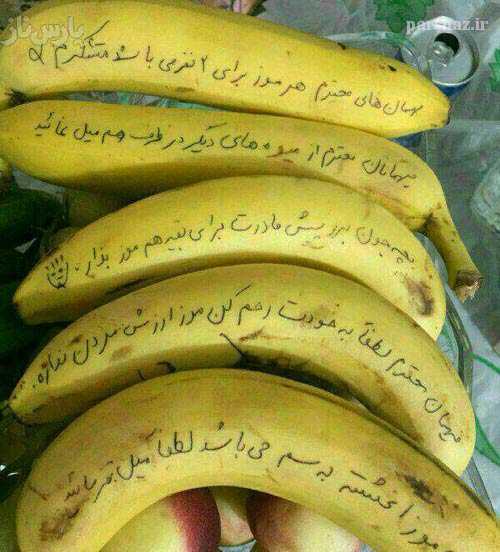 پارس ناز
parsnaz.ir
مهمان های محترم هر موز برای ۲ نفر می باشد متشکرم
میهمانان محترم از میوه های دیگر در ظرف هم میل نمائید
بچه جون برو پیش مادرت برای بقیه هم موز بذار.
میهمان محترم لطفاً به خودت رحم کن موز ارزش مردن نداره.
موز آغشته به سم می باشد لطفاً میل نفرمایید